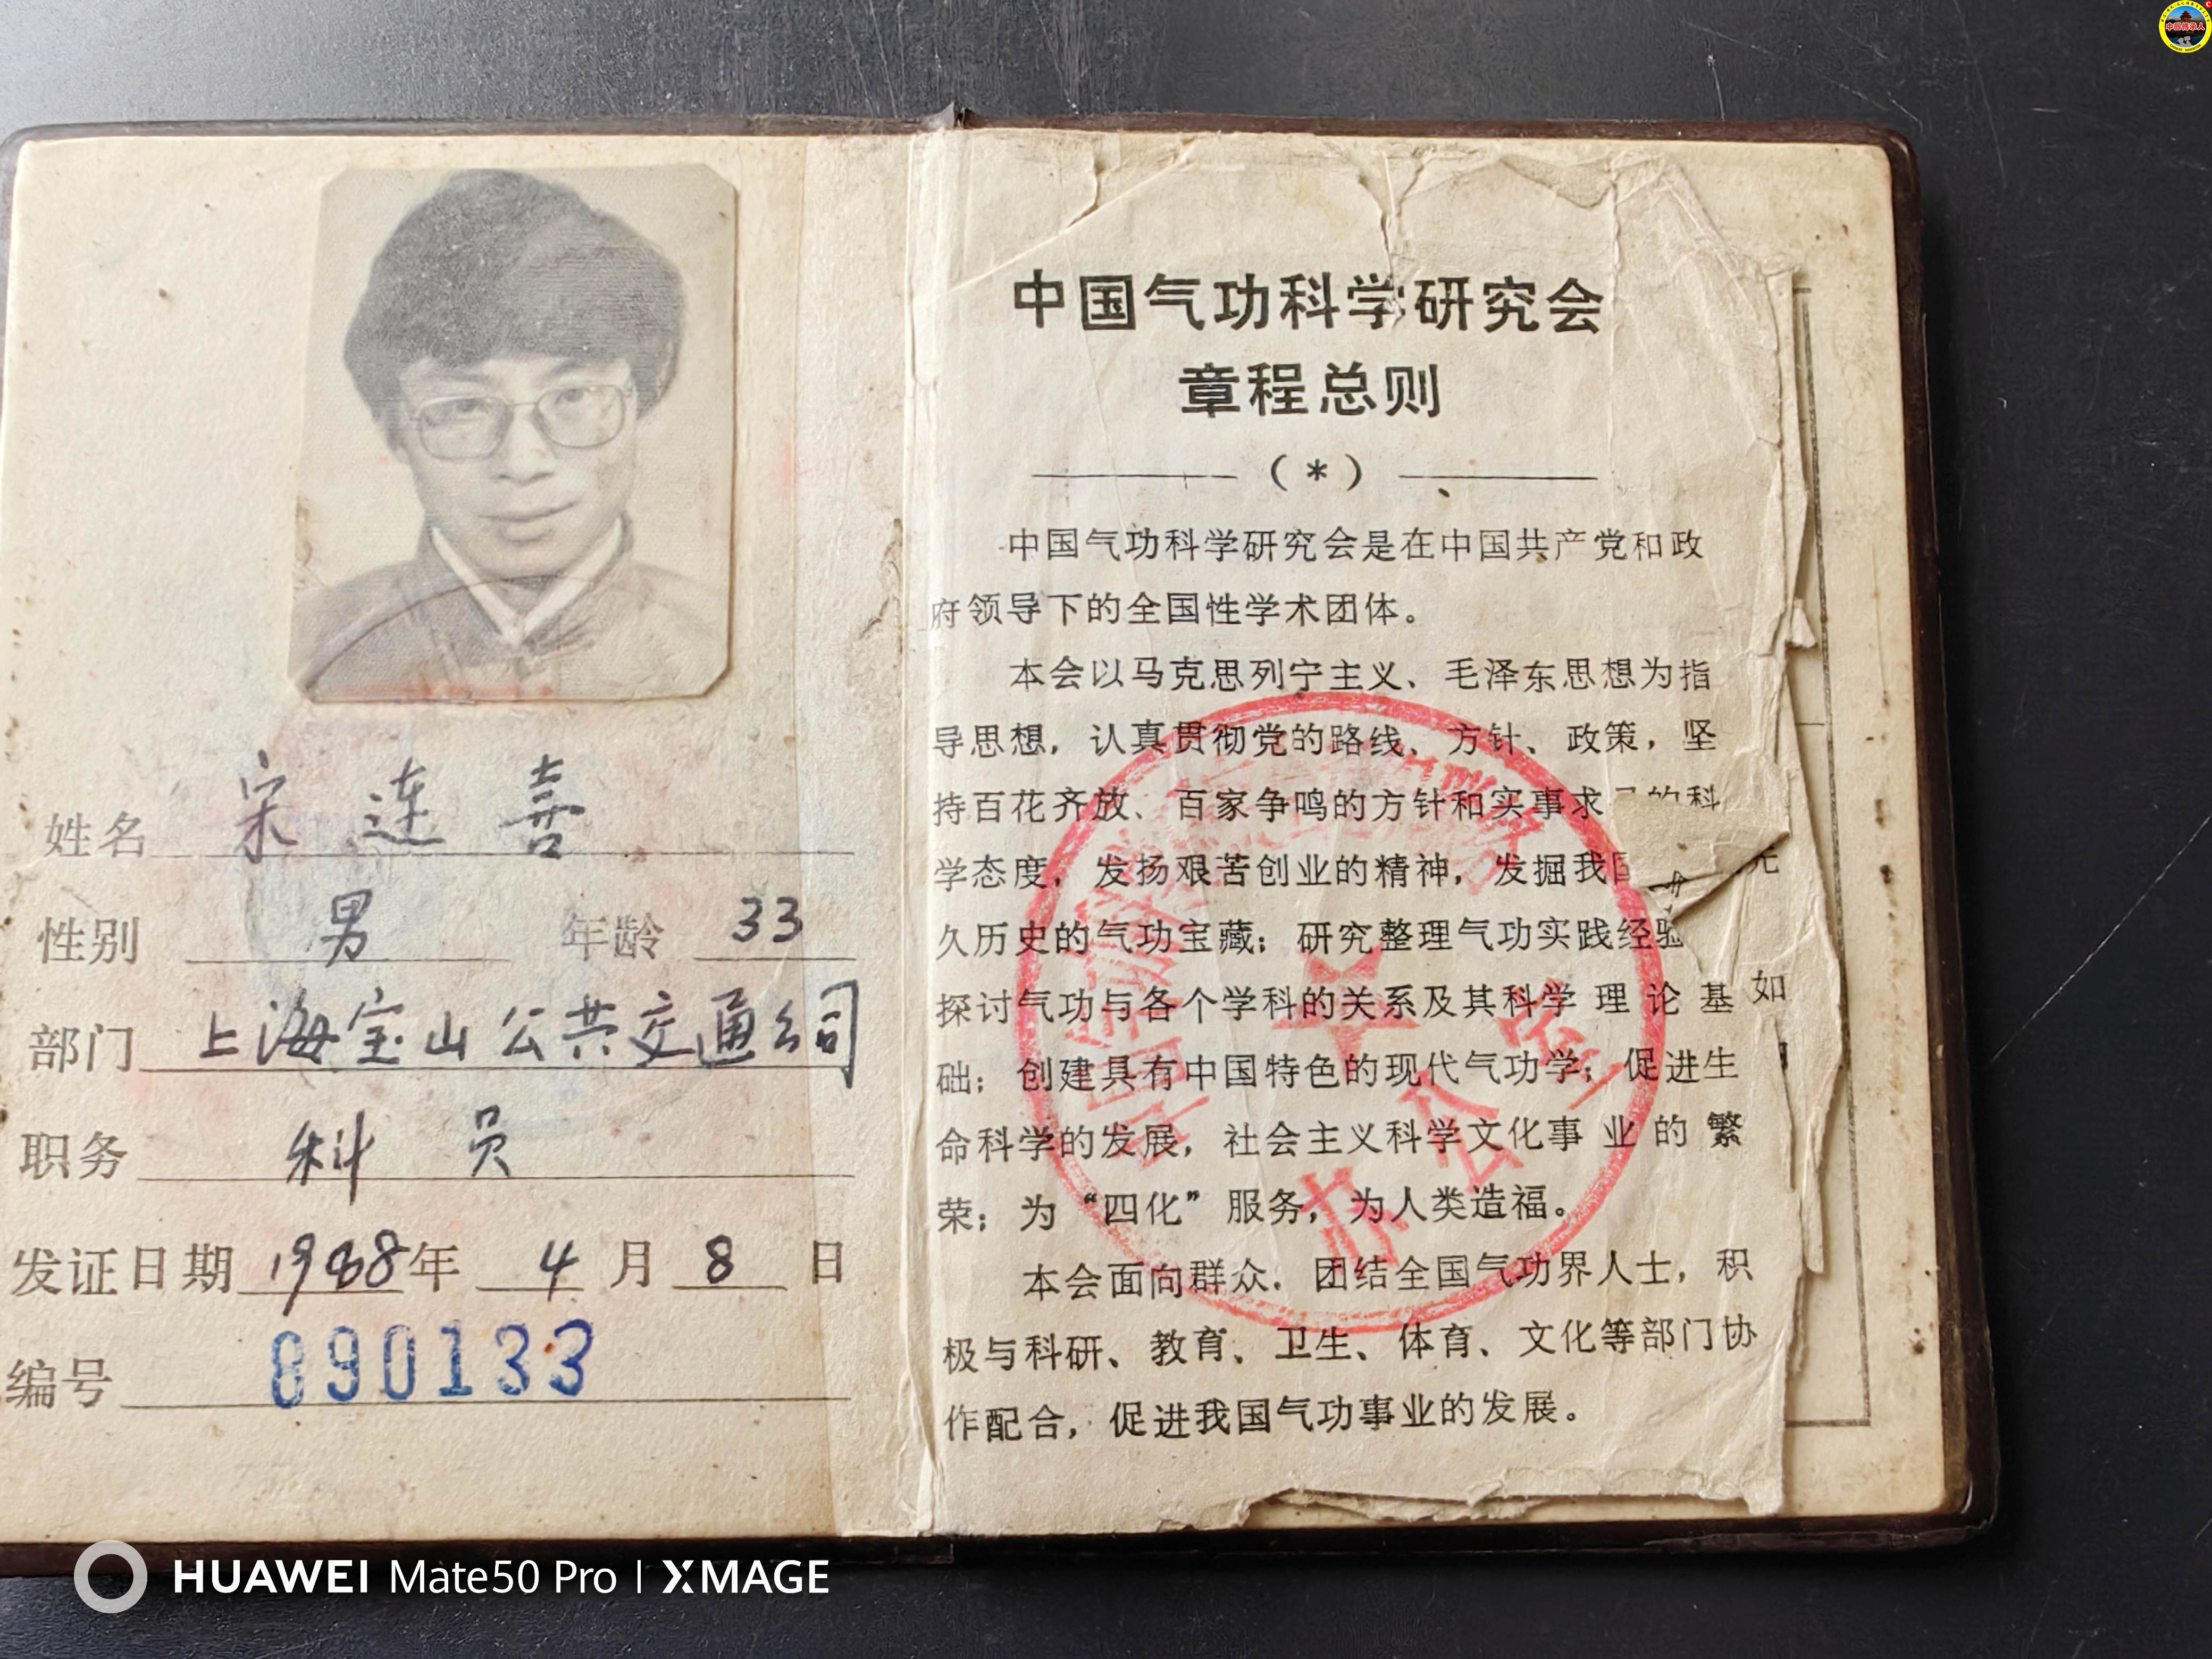 姓名 宋连喜
性别 男 年龄 33
部门 上海宝山公共交通公司
职务 科员
发证日期 1988年 4月 8日
编号 890133
中国气功科学研究会
章程总则
(*)
中国气功科学研究会是在中国共产党和政
府领导下的全国性学术团体。
本会以马克思列宁主义、毛泽东思想为指
导思想，认真贯彻党的路线、方针、政策，坚
持百花齐放、百家争鸣的方针和实事求 的科
学态度，发扬艰苦创业的精神，发掘我国
久历史的气功宝藏；研究整理气功实践经验
探讨气功与各个学科的关系及其科学理论基
如
础；创建具有中国特色的现代气功学；促进生
命科学的发展，社会主义科学文化事业的繁
荣；为“四化”服务，为人类造福。
本会面向群众．团结全国气功界人士，积
极与科研、教育、卫生、体育、文化等部门协
作配合，促进我国气功事业的发展。
办公室
HUAWEI Mate50 Pro | XMAGE